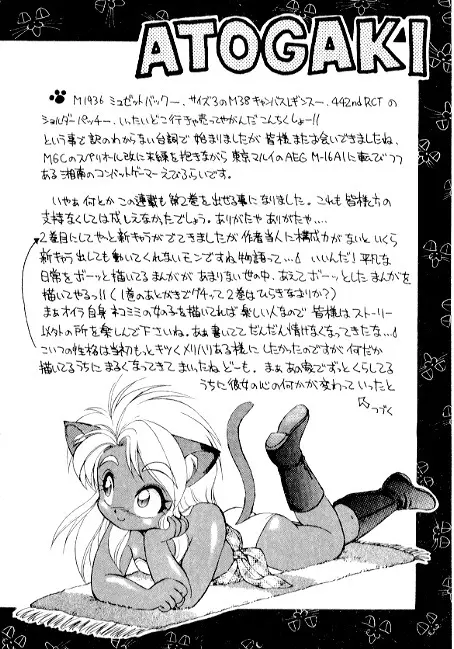 ATOGAKI
M1936 ミュゼットバックー、サイズ3のM38キャンバスレギンスー、442nd RCT の
ショルダーパッチー、いったいどこ行きゃ売ってやがんだこんちくしょー!!
という事で訳のわからない台詞で始まりましたが皆様またお会いできましたね、
MGCのスペリオール改に未練を抱きながら東京マルイのAEG M-16A1に転びつつ
ある湘南のコンバットゲーマーえびるらいです。
いやぁ何とかこの連載も第2巻を出せる事になりました。これも皆様方の
支持なくしては成しえなかったでしょう。ありがたや ありがたや....
2巻目にしてやっと新キャラがでてきましたが作者当人に構成力がないといくら
新キャラ出しても動いてくれないモンですね物語って...! いいんだ! 平凡な
日常をボーッと描いてるまんががあまりない世の中、あえてボーッとしたまんがを
描いてやるっ!! (1巻のあとがきでグチって2巻はひらきなおりか?)
まぁオイラ自身ネコミミの女の子を描いてれば楽しい人なので皆様はストーリー
以外の所を楽しんで下さいね。あぁ書いててだんだん情けなくなってきたな...!
こいつの性格は当初もっとキツくメリハリある様にしたかったのですが何だか
描いてるうちにまるくなってきてまいったねどーも。まぁあの家でずっとくらしてる
うちに彼女の心の何かが変わっていったと
つづく